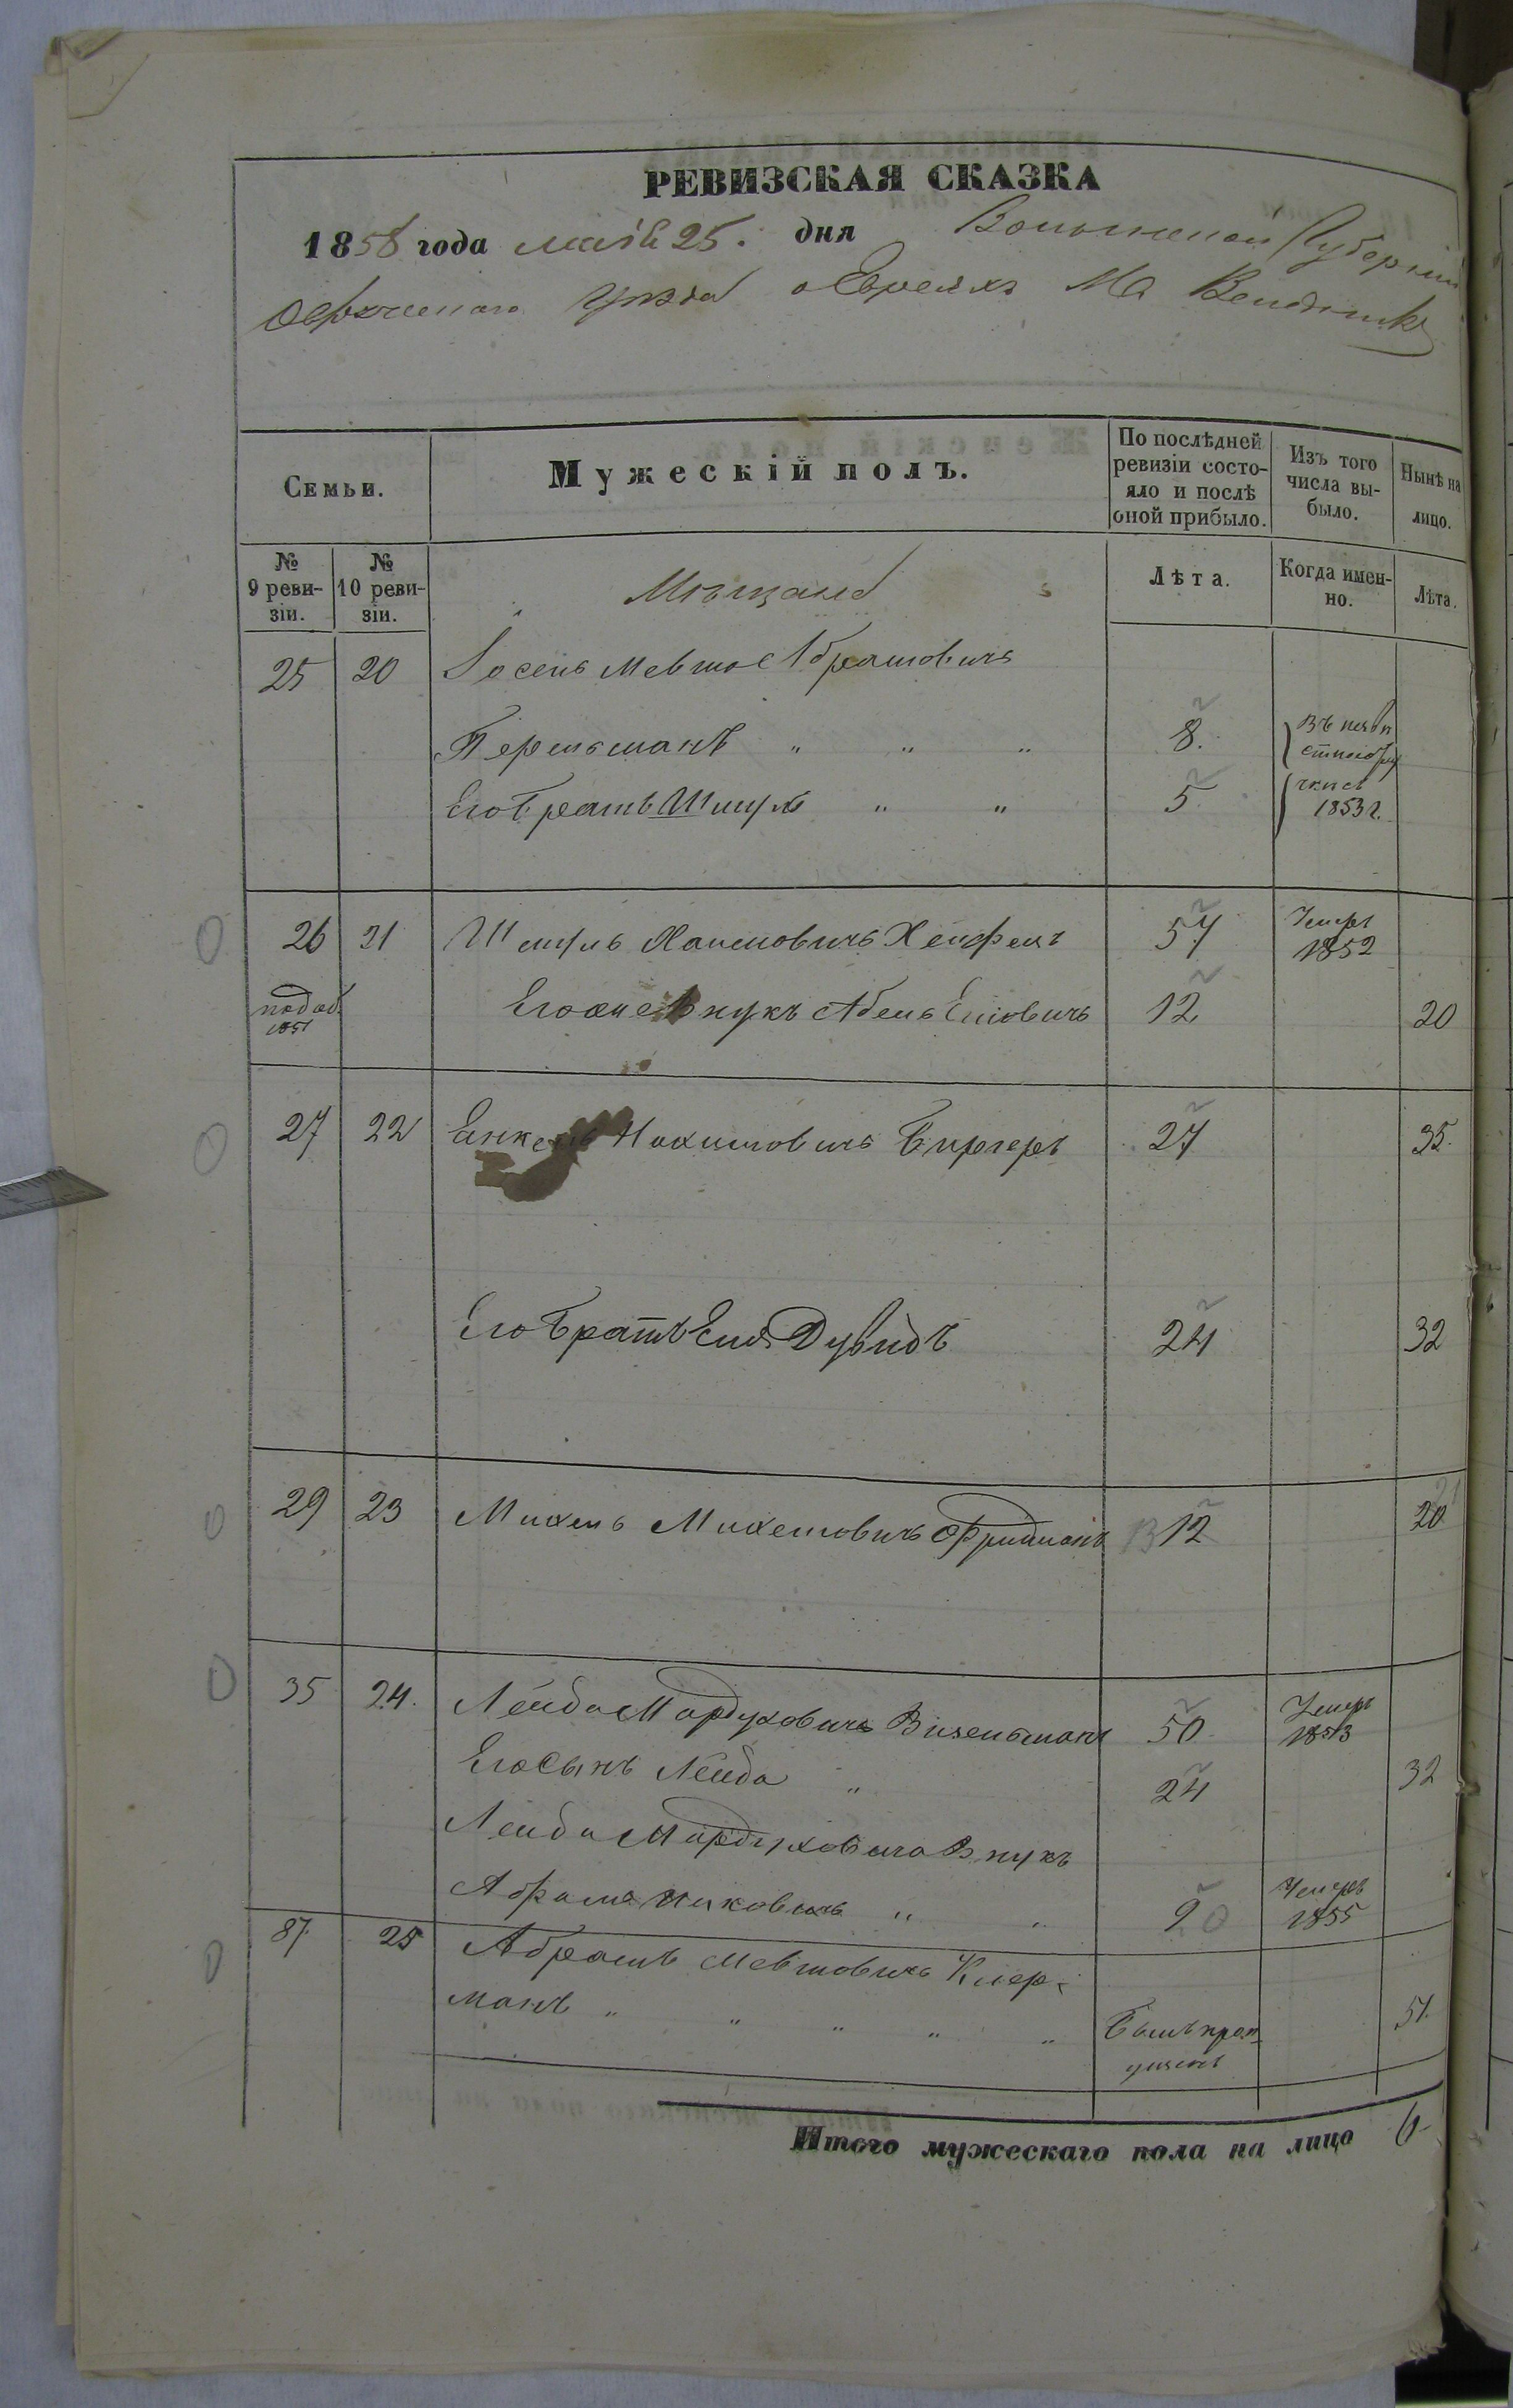 РЕВИЗСКАЯ СКАЗКА
1858 года маія 25. дня Волынской Губерніи
Овручскаго Уѣзда о Евреяхъ
Семьи.
Мужескій полъ.
По послѣдней ревизіи состо-
яло и послѣ
оной прибыло.
Изъ того
числа вы-
было.
Нынѣ на
лицо.
№
9 реви-
зіи.
№
10 реви-
зіи.
Мѣщане
Лѣта.
Когда имен-
но.
Лѣта.
25 20 Іосель Абрамовичъ
Перельманъ " " " 8.
Его Братъ Шмуль " " 5
1853 г.
26 21 Шмуль Хаимовичъ 57 Умеръ
1852
1851
Его Внукъ Абель 12 20
27 22 Енкель Биргеръ 27 35.
Его Братъ Дувидъ 24 32
29 23 Михель Михелювичъ Фридманъ 13 12 20 21
35 24. Лейба Мордуховичъ Визельманъ 50 Умеръ
1853
Его Сынъ Лейба " 24 32
Лейбы Мордуховича Внукъ
Абрамъ " " 2 Умеръ
1855
87. 25 Абрамъ
манъ " " " " " Былъ проп-
ущенъ 51.
Итого мужескаго пола на лицо 6